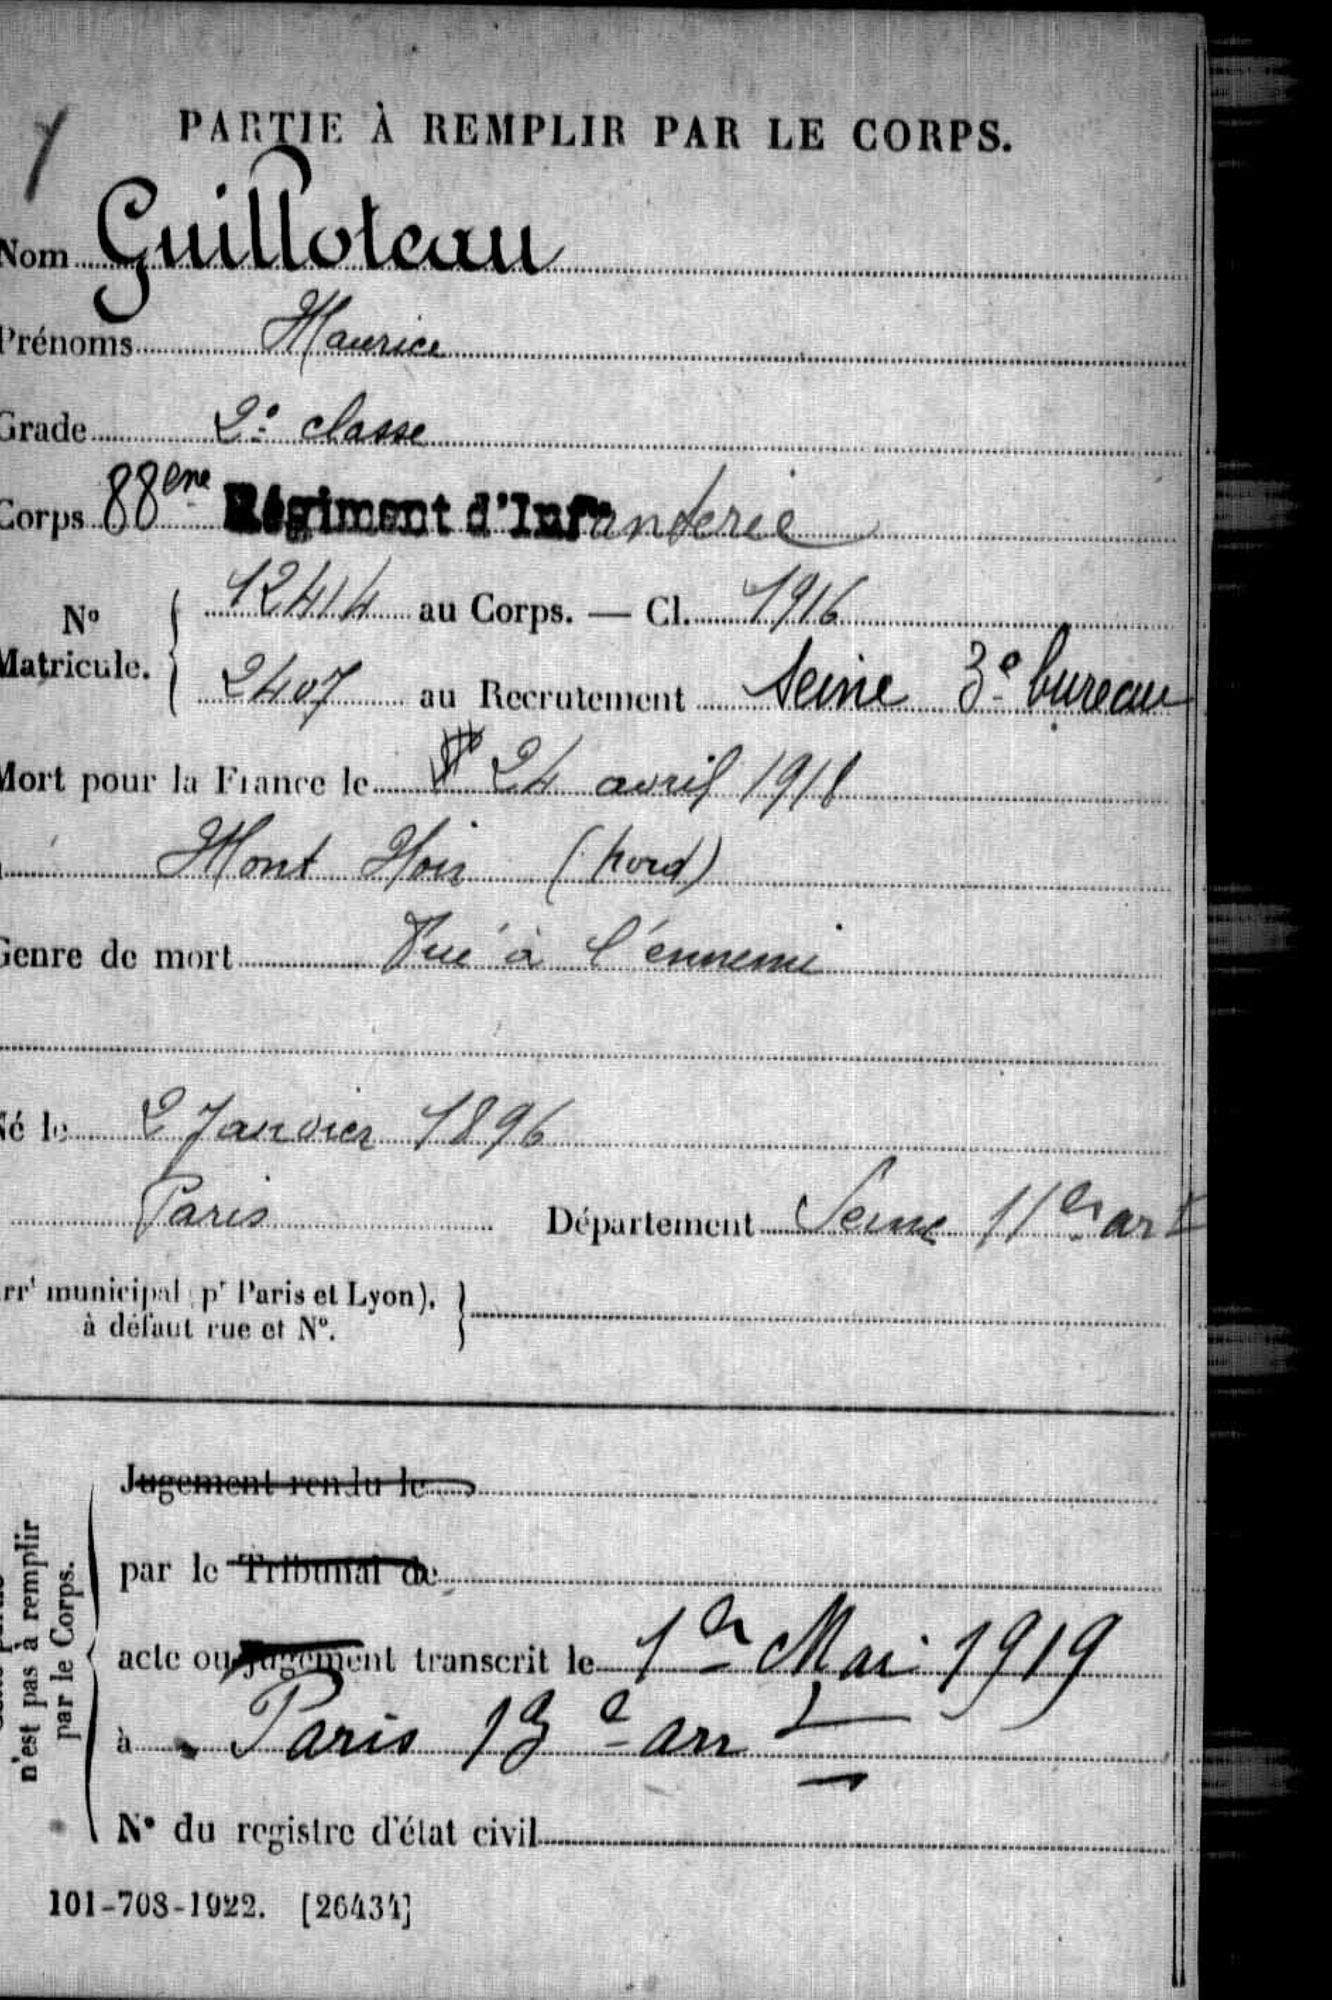 PARTIE À REMPLIR PAR LE CORPS.
Nom Guilloteau
Prénoms Maurice
Grade 2e classe
Corps 88ème Régiment d'Infanterie
N° Matricule. 12414 au Corps. — Cl. 1916
2407 au Recrutement Seine 3e bureau
Mort pour la France le 24 avril 1918
Mont Noir (Nord)
Genre de mort Tué à l'ennemi
Né le 2 Janvier 1896
Paris Département Seine 11er art
arrt municipal (pr Paris et Lyon),
à défaut rue et N°.
Jugement rendu le
par le Tribunal de
acte ou jugement transcrit le 1er Mai 1919
à Paris 13e arrt
N° du registre d'état civil
n'est pas à remplir
par le Corps.
101-708-1922. [26434]